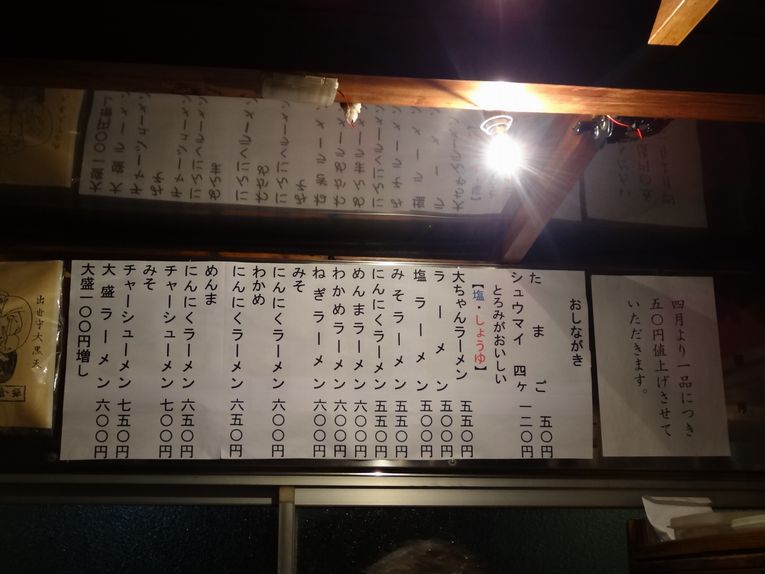 四月より一品につき
五〇円値上げさせて
いただきます。
おしながき
たまご 五〇円
シュウマイ 四ヶ 一二〇円
とろみがおいしい
【塩・しょうゆ】
大ちゃんラーメン 五五〇円
ラーメン 五〇〇円
塩ラーメン 五〇〇円
みそラーメン 五五〇円
にんにくラーメン 五五〇円
めんまラーメン 六〇〇円
わかめラーメン 六〇〇円
ねぎラーメン 六〇〇円
みそ
にんにくラーメン 六〇〇円
わかめ
にんにくラーメン 六五〇円
めんま
にんにくラーメン 六五〇円
チャーシューメン 七〇〇円
みそ
チャーシューメン 七五〇円
大盛ラーメン 六〇〇円
大盛一〇〇円増し
出世守大黒天